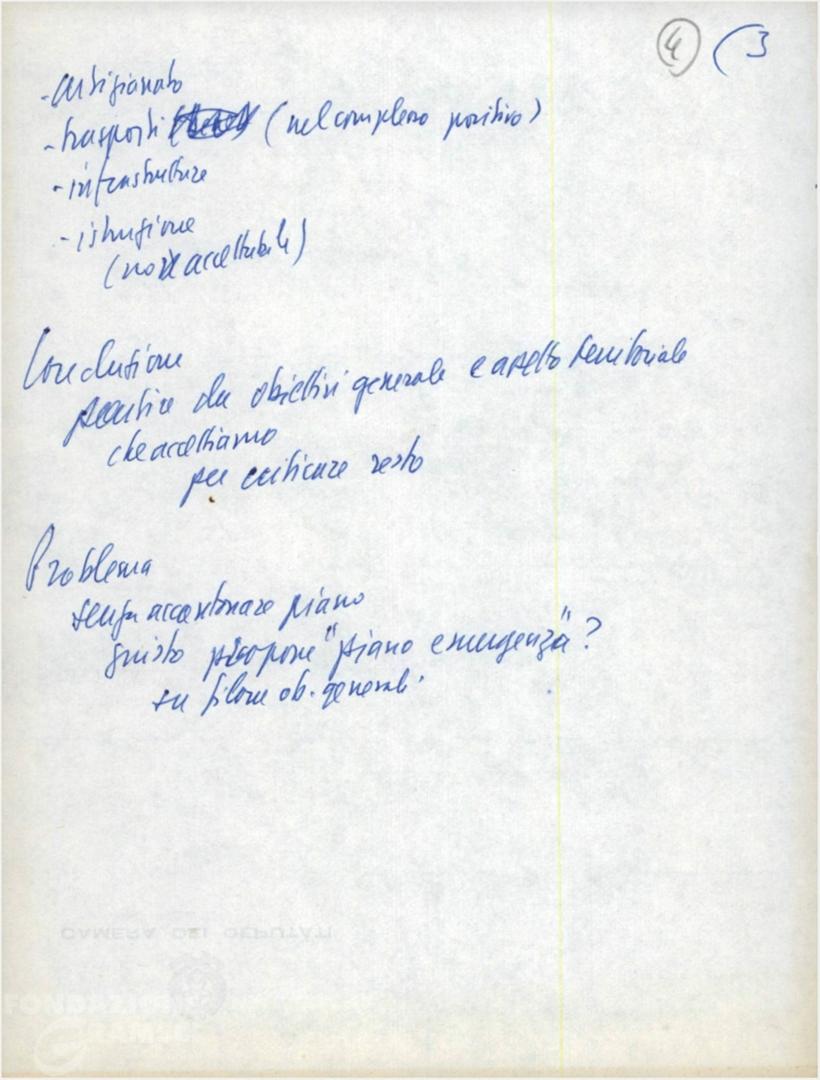 4 (3
- artigianato
- trasporti (nel complesso positivo)
- infrastrutture
- istruzione
(non accettabile)
Conclusione
partire da obiettivi generale e assetto territoriale
che accettiamo
per criticare resto
Problema
senza accantonare piano
giusto proporre "piano emergenza"?
su filone ob. generali
CAMERA DEI DEPUTATI
FONDAZIONE
GRAMSCI